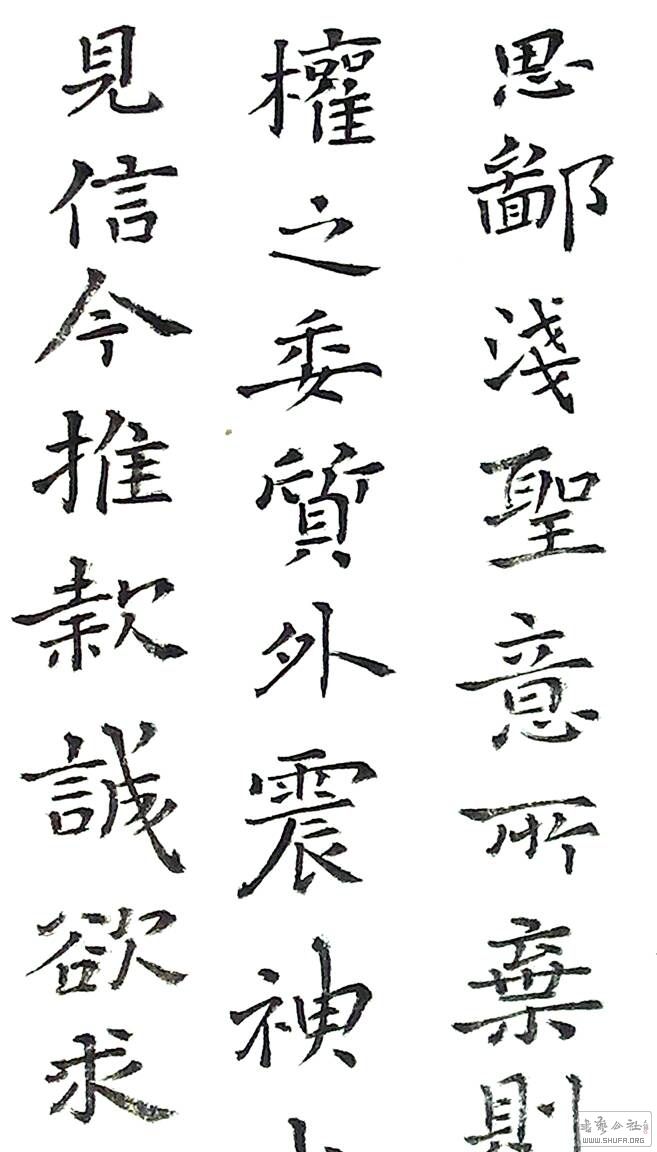 思鄙淺聖意所棄則
權之委質外震神
見信今推款誠欲求
WWW.SHUFA.ORG